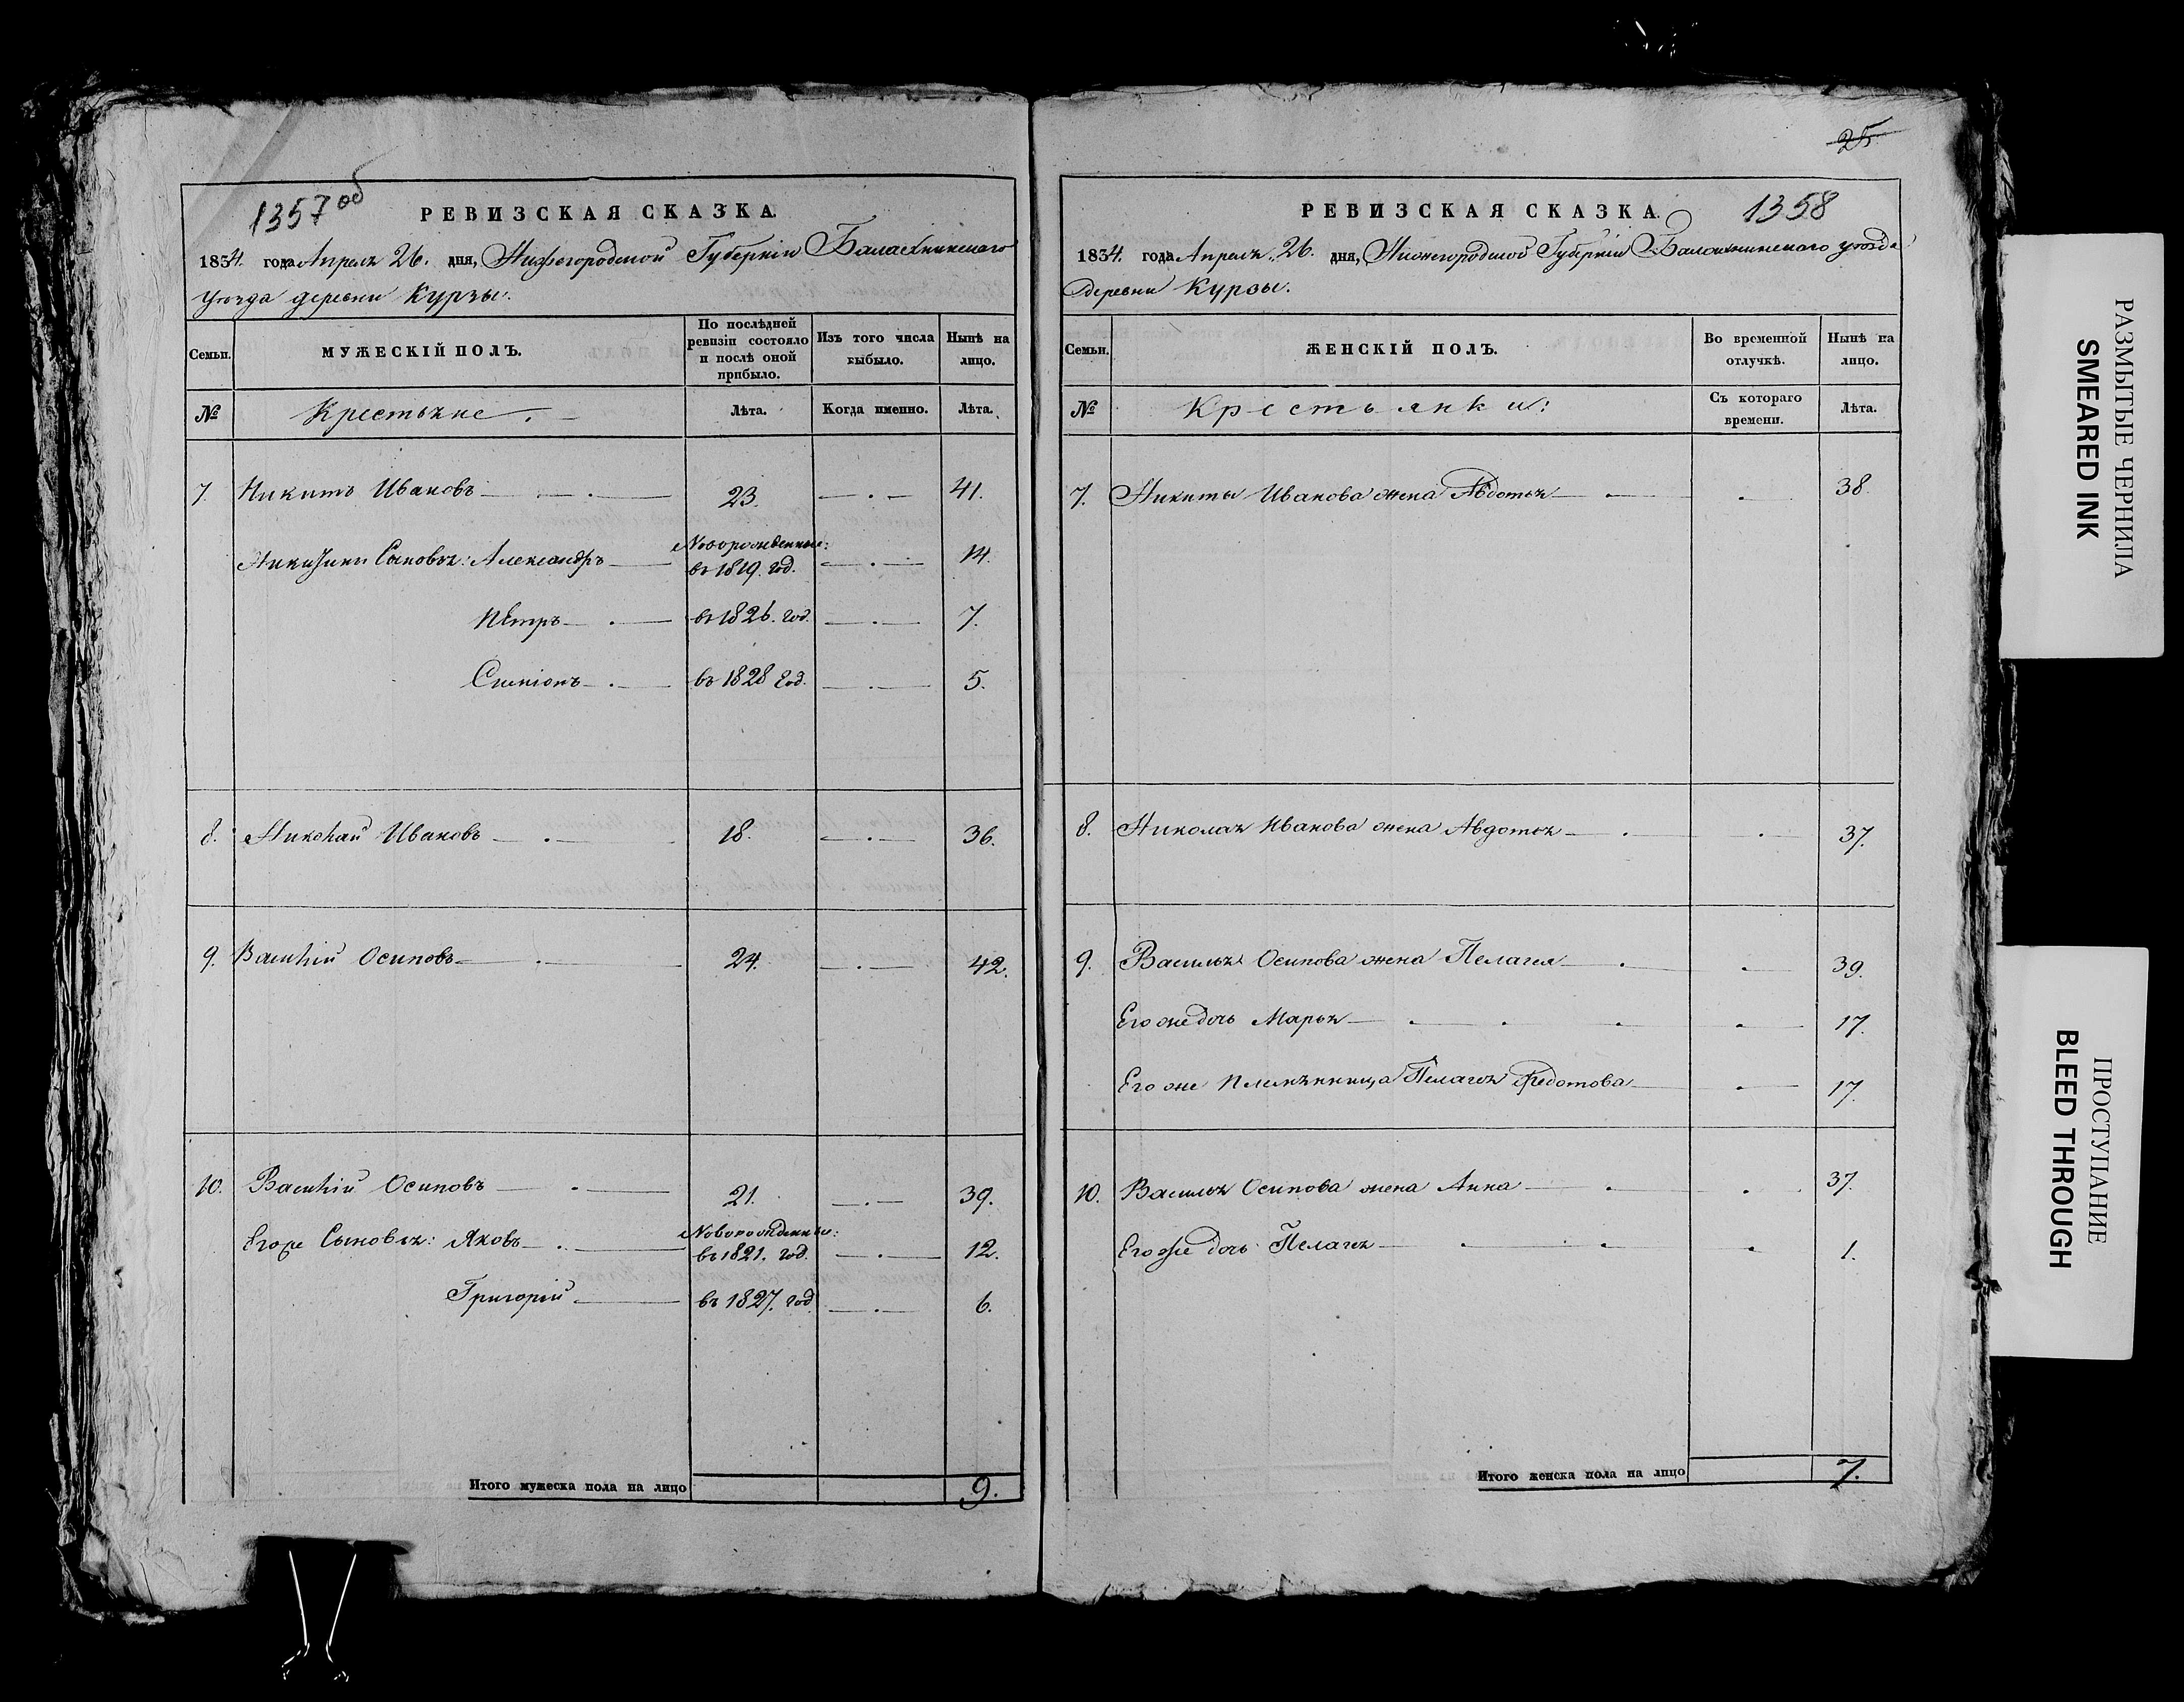 25
1357 об
РЕВИЗСКАЯ СКАЗКА.
1834. года Апреля 26. дня, Нижегородской Губернiи Балахнинскаго
уѣзда деревни Курзы.
Семьи.
МУЖЕСКIЙ ПОЛЪ.
По послѣдней ревизiи состояло и послѣ оной прибыло.
Изъ того числа выбыло.
Нынѣ на лицо.
№
Крестьяне.
Лѣта.
Когда именно.
Лѣта.
7. Никита Ивановъ 23. 41.
Новорожденные:
Никитины Сыновья: Александръ въ 1819. год. 14.
Петръ въ 1826. год. 7.
Симiонъ въ 1828 год. 5.
8. Николай Ивановъ 18. 36.
9. Василiй Осиповъ 24. 42.
10. Василiй Осиповъ 21. 39.
Новорожденные:
Егоже Сыновья: Яковъ въ 1821. год. 12.
Григорiй въ 1827. год 6.
Итого мужеска пола на лицо 9.
РЕВИЗСКАЯ СКАЗКА. 1358
1834. года Апреля 26. дня, Нижегородской Губернiи Балахнинскаго уѣзда
деревни Курзы.
Семьи.
ЖЕНСКIЙ ПОЛЪ.
Во временной отлучкѣ.
Нынѣ на лицо.
№
Крестьянки:
Съ котораго времени.
Лѣта.
7. Никиты Иванова жена Авдотья 38.
8. Николая Иванова жена Авдотья 37.
9. Василья Осипова жена Пелагея 39.
Его же дочь Марья 17.
Его же племянница Пелагея Федотова 17.
10. Василья Осипова жена Анна 37.
Его же дочь Пелагея 1.
Итого женска пола на лицо 7.
РАЗМЫТЫЕ ЧЕРНИЛА
SMEARED INK
ПРОСТУПАНИЕ
BLEED THROUGH